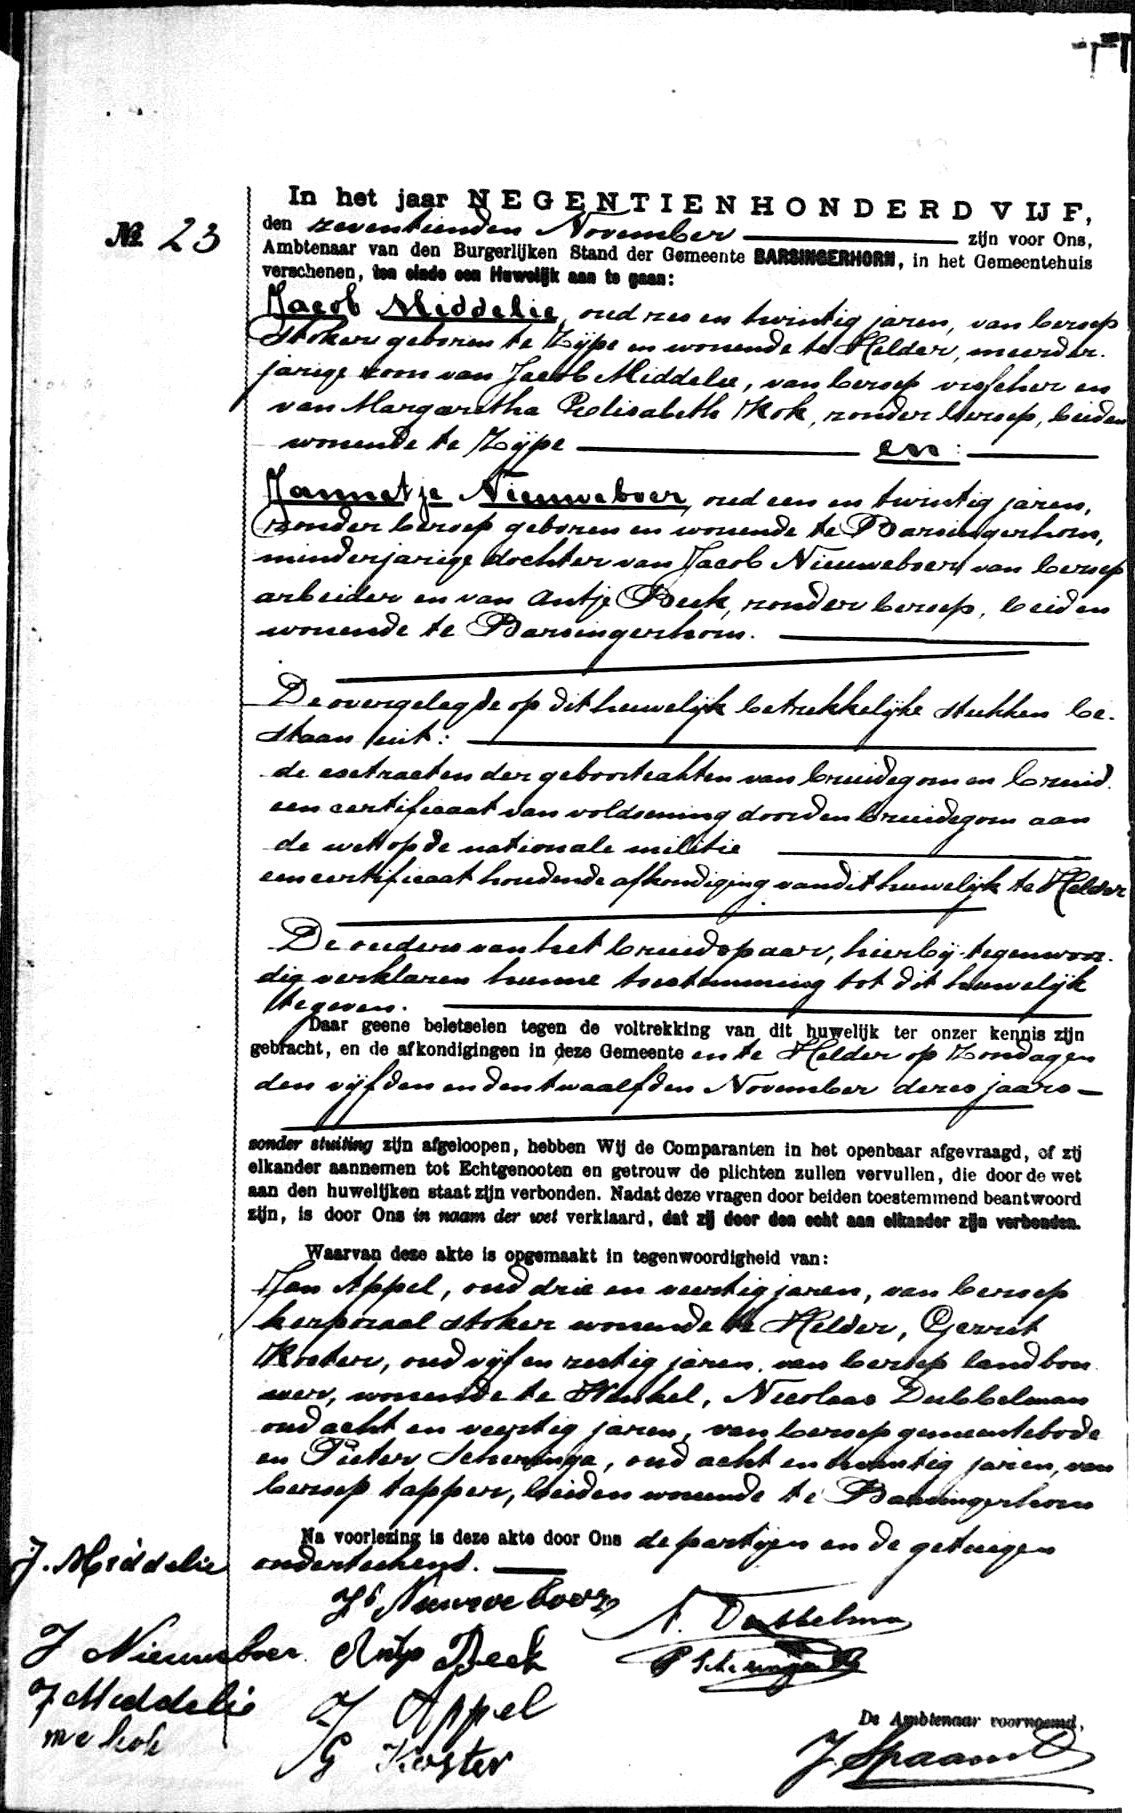 № 23
In het jaar NEGENTIENHONDERD VIJF,
den zeventienden November zijn voor Ons,
Ambtenaar van den Burgerlijken Stand der Gemeente BARSINGERHORN, in het Gemeentehuis
verschenen, ten einde een Huwelijk aan te gaan:
Jacob Middelie, oud zes en twintig jaren, van beroep
stoker geboren te Zijpe en wonende te Helder, meerder-
jarige zoon van Jacob Middelie, van beroep visscher en
van Margaretha Elisabeth Kok, zonder beroep, beiden
wonende te Zijpe en:
Jannetje Nieuweboer, oud een en twintig jaren,
zonder beroep geboren en wonende te Barsingerhorn,
minderjarige dochter van Jacob Nieuweboer van beroep
arbeider en van Antje Beek, zonder beroep, beiden
wonende te Barsingerhorn.
De overgelegde op dit huwelijk betrekkelijke stukken be-
staan uit:
de extracten der geboorteakten van bruidegom en bruid.
een certificaat van voldoening door den bruidegom aan
de wet op de nationale militie
een certificaat houdende afkondiging van dit huwelijk te Helder
De ouders van het bruidspaar, hierbij tegenwoor-
dig verklaren hunne toestemming tot dit huwelijk
te geven.
Daar geene beletselen tegen de voltrekking van dit huwelijk ter onzer kennis zijn
gebracht, en de afkondigingen in deze Gemeente en te Helder op Zondagen
den vijfden en den twaalfden November dezes jaars
zonder stuiting zijn afgeloopen, hebben Wij de Comparanten in het openbaar afgevraagd, of zij
elkander aannemen tot Echtgenooten en getrouw de plichten zullen vervullen, die door de wet
aan den huwelijken staat zijn verbonden. Nadat deze vragen door beiden toestemmend beantwoord
zijn, is door Ons in naam der wet verklaard, dat zij door den echt aan elkander zijn verbonden.
Waarvan deze akte is opgemaakt in tegenwoordigheid van:
Jan Appel, oud drie en veertig jaren, van beroep
korporaal stoker wonende te Helder, Gerrit
Koster, oud vijf en zestig jaren, van beroep landbou
wer, wonende te Winkel, Nicolaas Dubbelman
oud acht en veertig jaren, van beroep gemeentebode
en Pieter Scheringa, oud acht en twintig jaren, van
beroep tapper, beiden wonende te Barsingerhorn
Na voorlezing is deze akte door Ons de partijen en de getuigen
onderteekend.
J. Middelie
Jb Nieuweboer
N. Dubbelman
J Nieuweboer
Antje Beek
P Scheringa
J Middelie
J Appel
m e kok
G Koster
De Ambtenaar voornoemd,
J Spaans